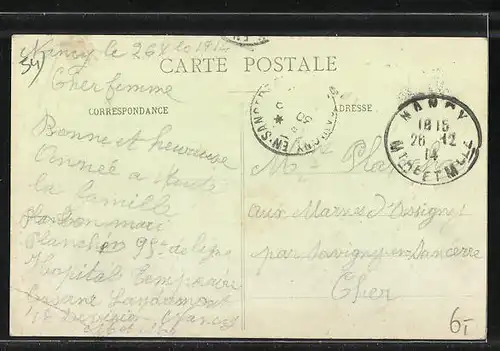 Nancy le 26 Xbre 1914
CARTE POSTALE
Cher femme
CORRESPONDANCE
ADRESSE
Bonne et heureuse
année a toute
la famille
ton mari
Planchon 95e de ligne
Hopital Temporaire
Caserne Landremont
Nancy
Mme
aux Marnes d'Assigny
par Savigny-en-Sancerre
Cher
NANCY
1815
26 12
14
MTHE ET MLLE
SAVIGNY-EN-SANCERRE
6,-